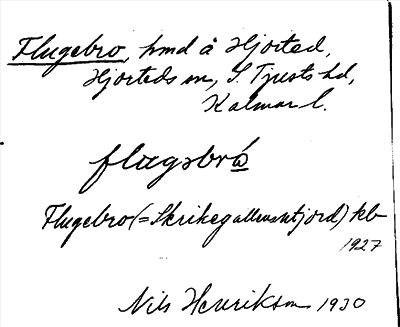 Flugebro, hmd å Hjorted,
Hjorteds sn, S. Tjusts hd,
Kalmar l.
flugsbrå
Flugebro (= ) kb
1927
Nils Henrikson 1930